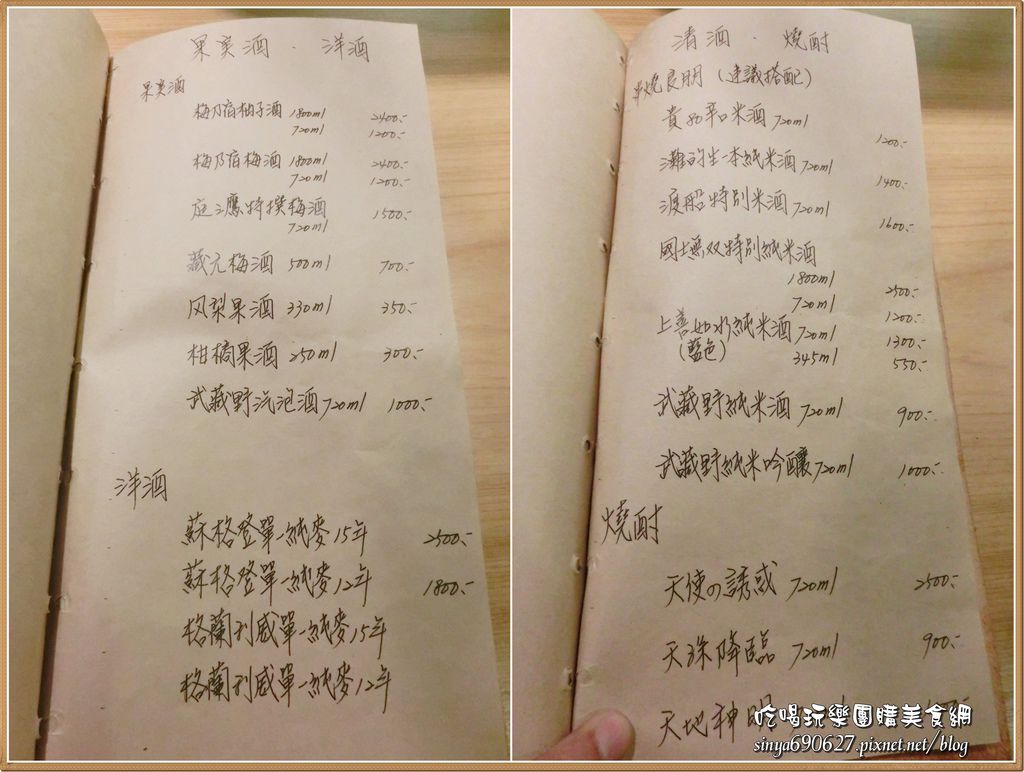 果實酒 · 洋酒
果實酒
梅乃宿柚子酒 1800ml 2400.-
720ml 1200.-
梅乃宿梅酒 1800ml 2400.-
720ml 1200.-
庭之鷹特撰梅酒 1500.-
720ml
藏元梅酒 500ml 700.-
风梨果酒 330ml 350.-
柑橘果酒 250ml 300.-
武藏野汽泡酒 720ml 1000.-
洋酒
蘇格登單一純麥15年 2500.-
蘇格登單一純麥12年 1800.-
格蘭利威單一純麥15年
格蘭利威單一純麥12年
清酒 · 燒酎
串燒良朋（建議搭配）
貴 辛口米酒 720ml 1200.-
灘の生一本純米酒 720ml 1400.-
渡船特別米酒 720ml 1600.-
國士無双特別純米酒
1800ml 2500.-
720ml 1200.-
上善如水純米酒 720ml 1300.-
（藍色） 345ml 550.-
武藏野純米酒 720ml 900.-
武藏野純米吟釀 720ml 1000.-
燒酎
天使の誘惑 720ml 2500.-
天孫降臨 720ml 900.-
天地神
吃喝玩樂團購美食網
sinya690627.pixnet.net/blog